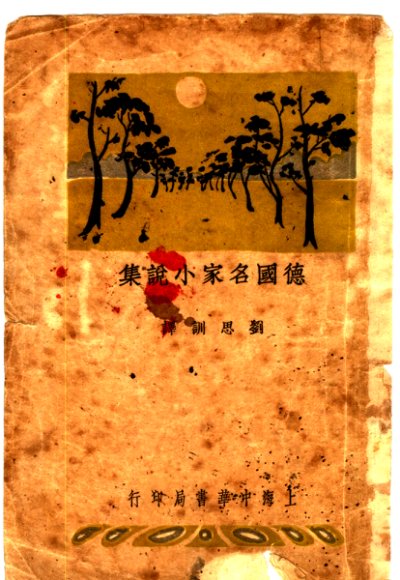 德國名家小說集
劉思訓譯
上海中華書局印行